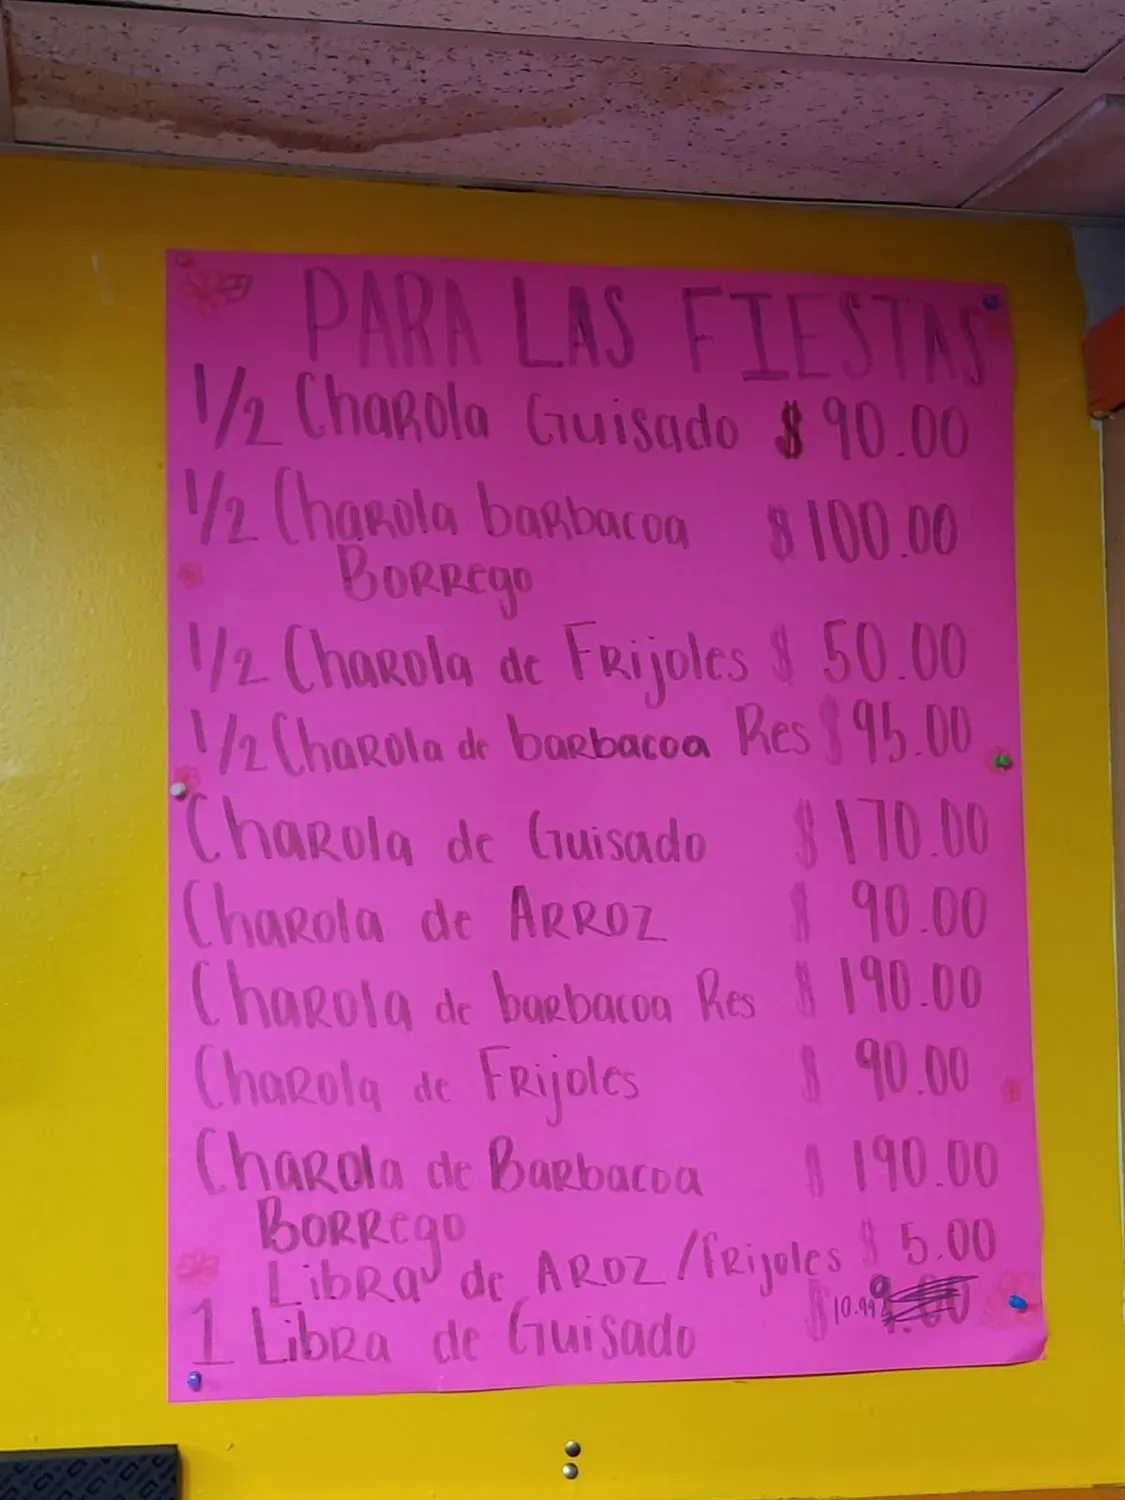 PARA LAS FIESTAS
1/2 Charola Guisado $ 90.00
1/2 Charola barbacoa $ 100.00
Borrego
1/2 Charola de Frijoles $ 50.00
1/2 Charola de barbacoa Res $ 95.00
Charola de Guisado $ 170.00
Charola de ARROZ $ 90.00
Charola de barbacoa Res $ 190.00
Charola de Frijoles $ 90.00
Charola de Barbacoa $ 190.00
Borrego
Libra de AROZ / frijoles $ 5.00
1 Libra de Guisado $ 10.99